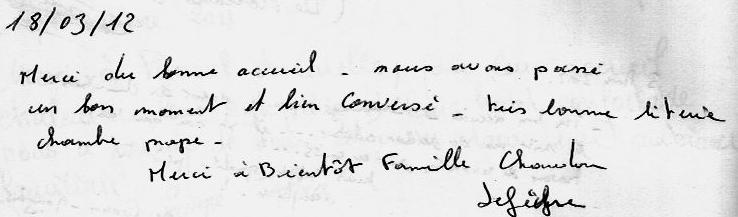 18/03/12
Merci du bonne accueil - nous avons passé
un bon moment et bien conversé - très bonne literie
chambre propre -
Merci à Bientôt Famille